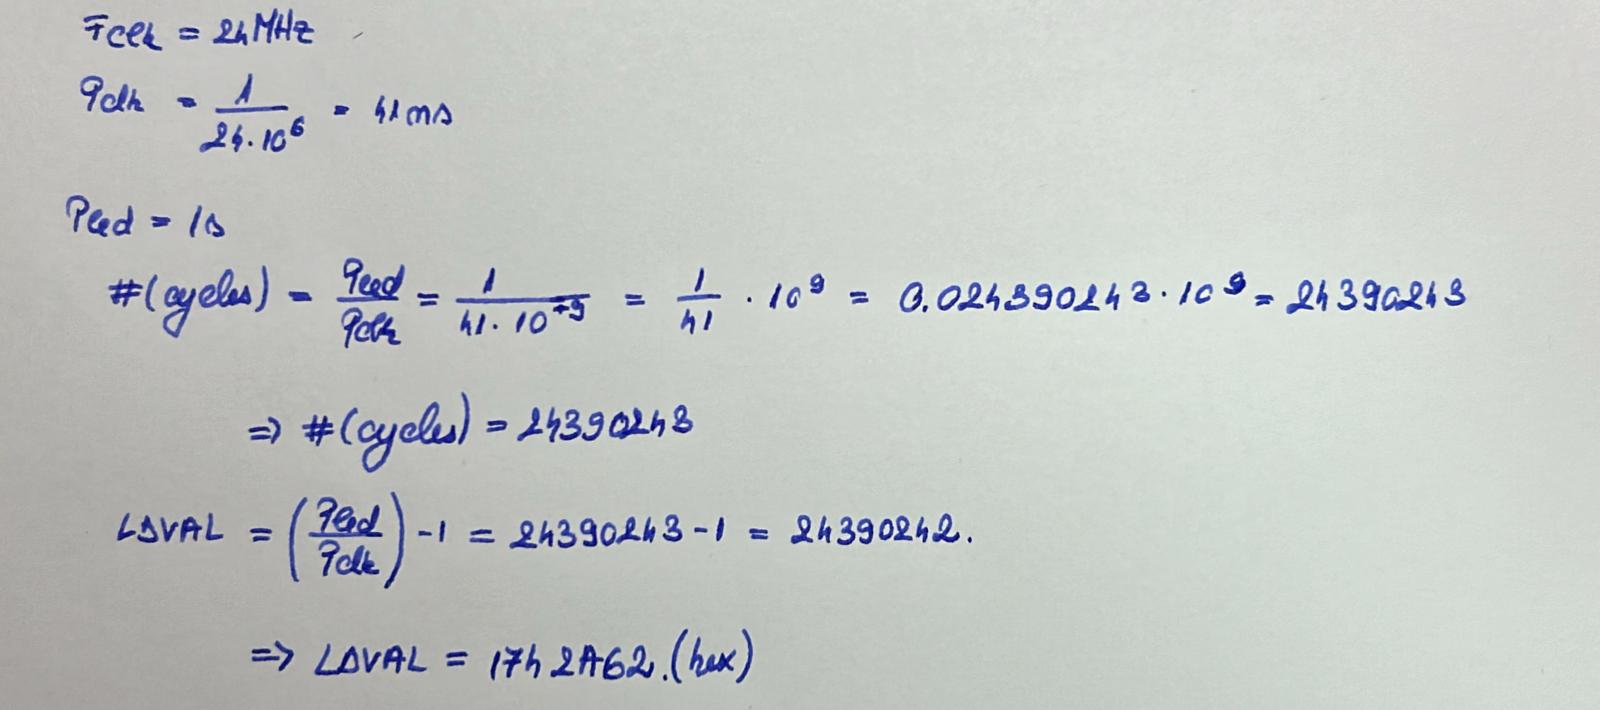 Fclk = 24MHz
Pclk = 1/(24·10^6) = 41ns
Pled = 1s
#(cycles) = Pled/Pclk = 1/(41·10^-9) = 1/41 · 10^9 = 0.024390243·10^9 = 24390243
=> #(cycles) = 24390243
LDVAL = (Pled/Pclk) -1 = 24390243-1 = 24390242.
=> LDVAL = 1742A62.(hex)